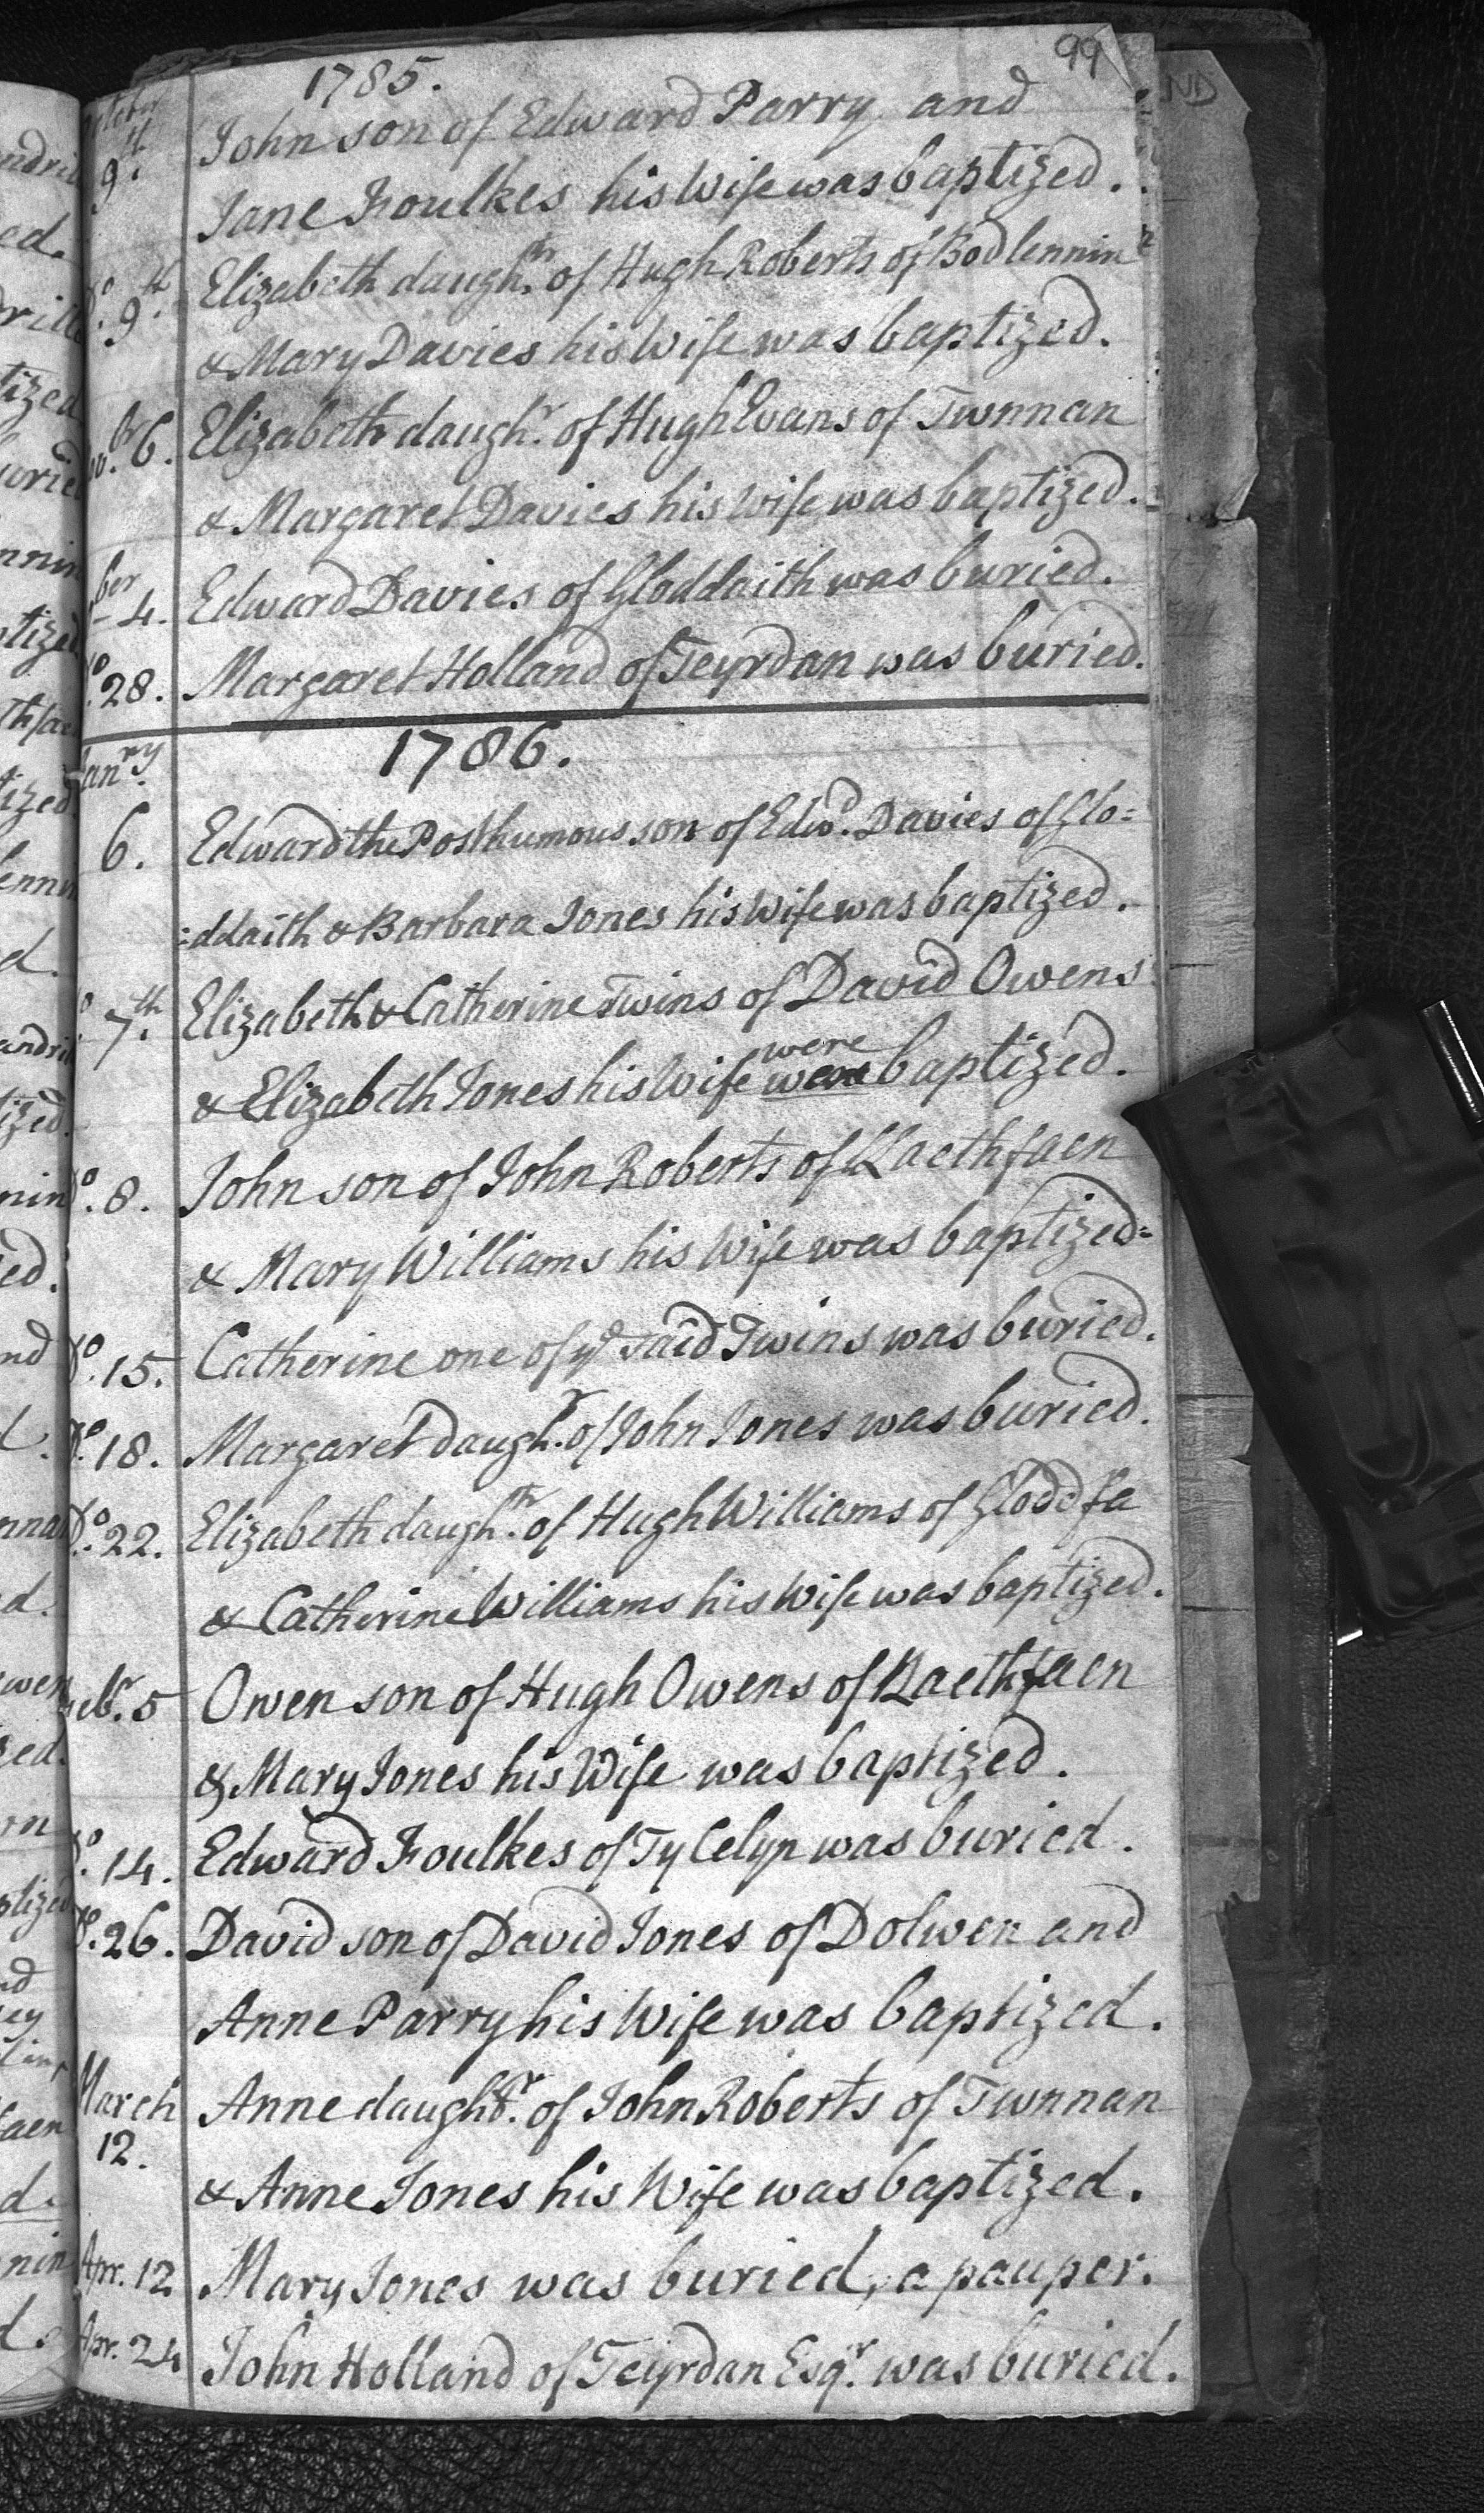 99
1785.
October
9th. John son of Edward Parry and
Jane Foulkes his Wife was baptized.
Do. 9th. Elizabeth daughtr. of Hugh Roberts of Bodlennin
& Mary Davies his Wife was baptized.
br 6. Elizabeth daughr. of Hugh Evans of Twnnan
& Margaret Davies his Wife was baptized.
ber 4. Edward Davies of Gloddaith was buried.
28. Margaret Holland of Teyrdan was buried.
1786.
Janry.
6. Edward the Posthumous son of Edwd. Davies of Glo=
=ddaith & Barbara Jones his Wife was baptized.
7th. Elizabeth & Catherine Twins of David Owens
were
& Elizabeth Jones his Wife were baptized.
Do. 8. John son of John Roberts of Llaethfaen
& Mary Williams his Wife was baptized=
Do. 15. Catherine one of ye said Twins was buried.
Do. 18. Margaret Daughr. of John Jones was buried.
Do. 22. Elizabeth daughtr. of Hugh Williams of Glodd fa
& Catherine Williams his Wife was baptized.
Febr. 5 Owen son of Hugh Owens of Llaethfaen
& Mary Jones his Wife was baptized.
Do. 14. Edward Foulkes of Ty Celyn was buried.
Do. 26. David son of David Jones of Dolwen and
Anne Parry his Wife was baptized.
March
12. Anne daughtr. of John Roberts of Twnnan
& Anne Jones his Wife was baptized.
Apr. 12 Mary Jones was buried, a pauper.
Apr. 24 John Holland of Teyrdan Esqr. was buried.